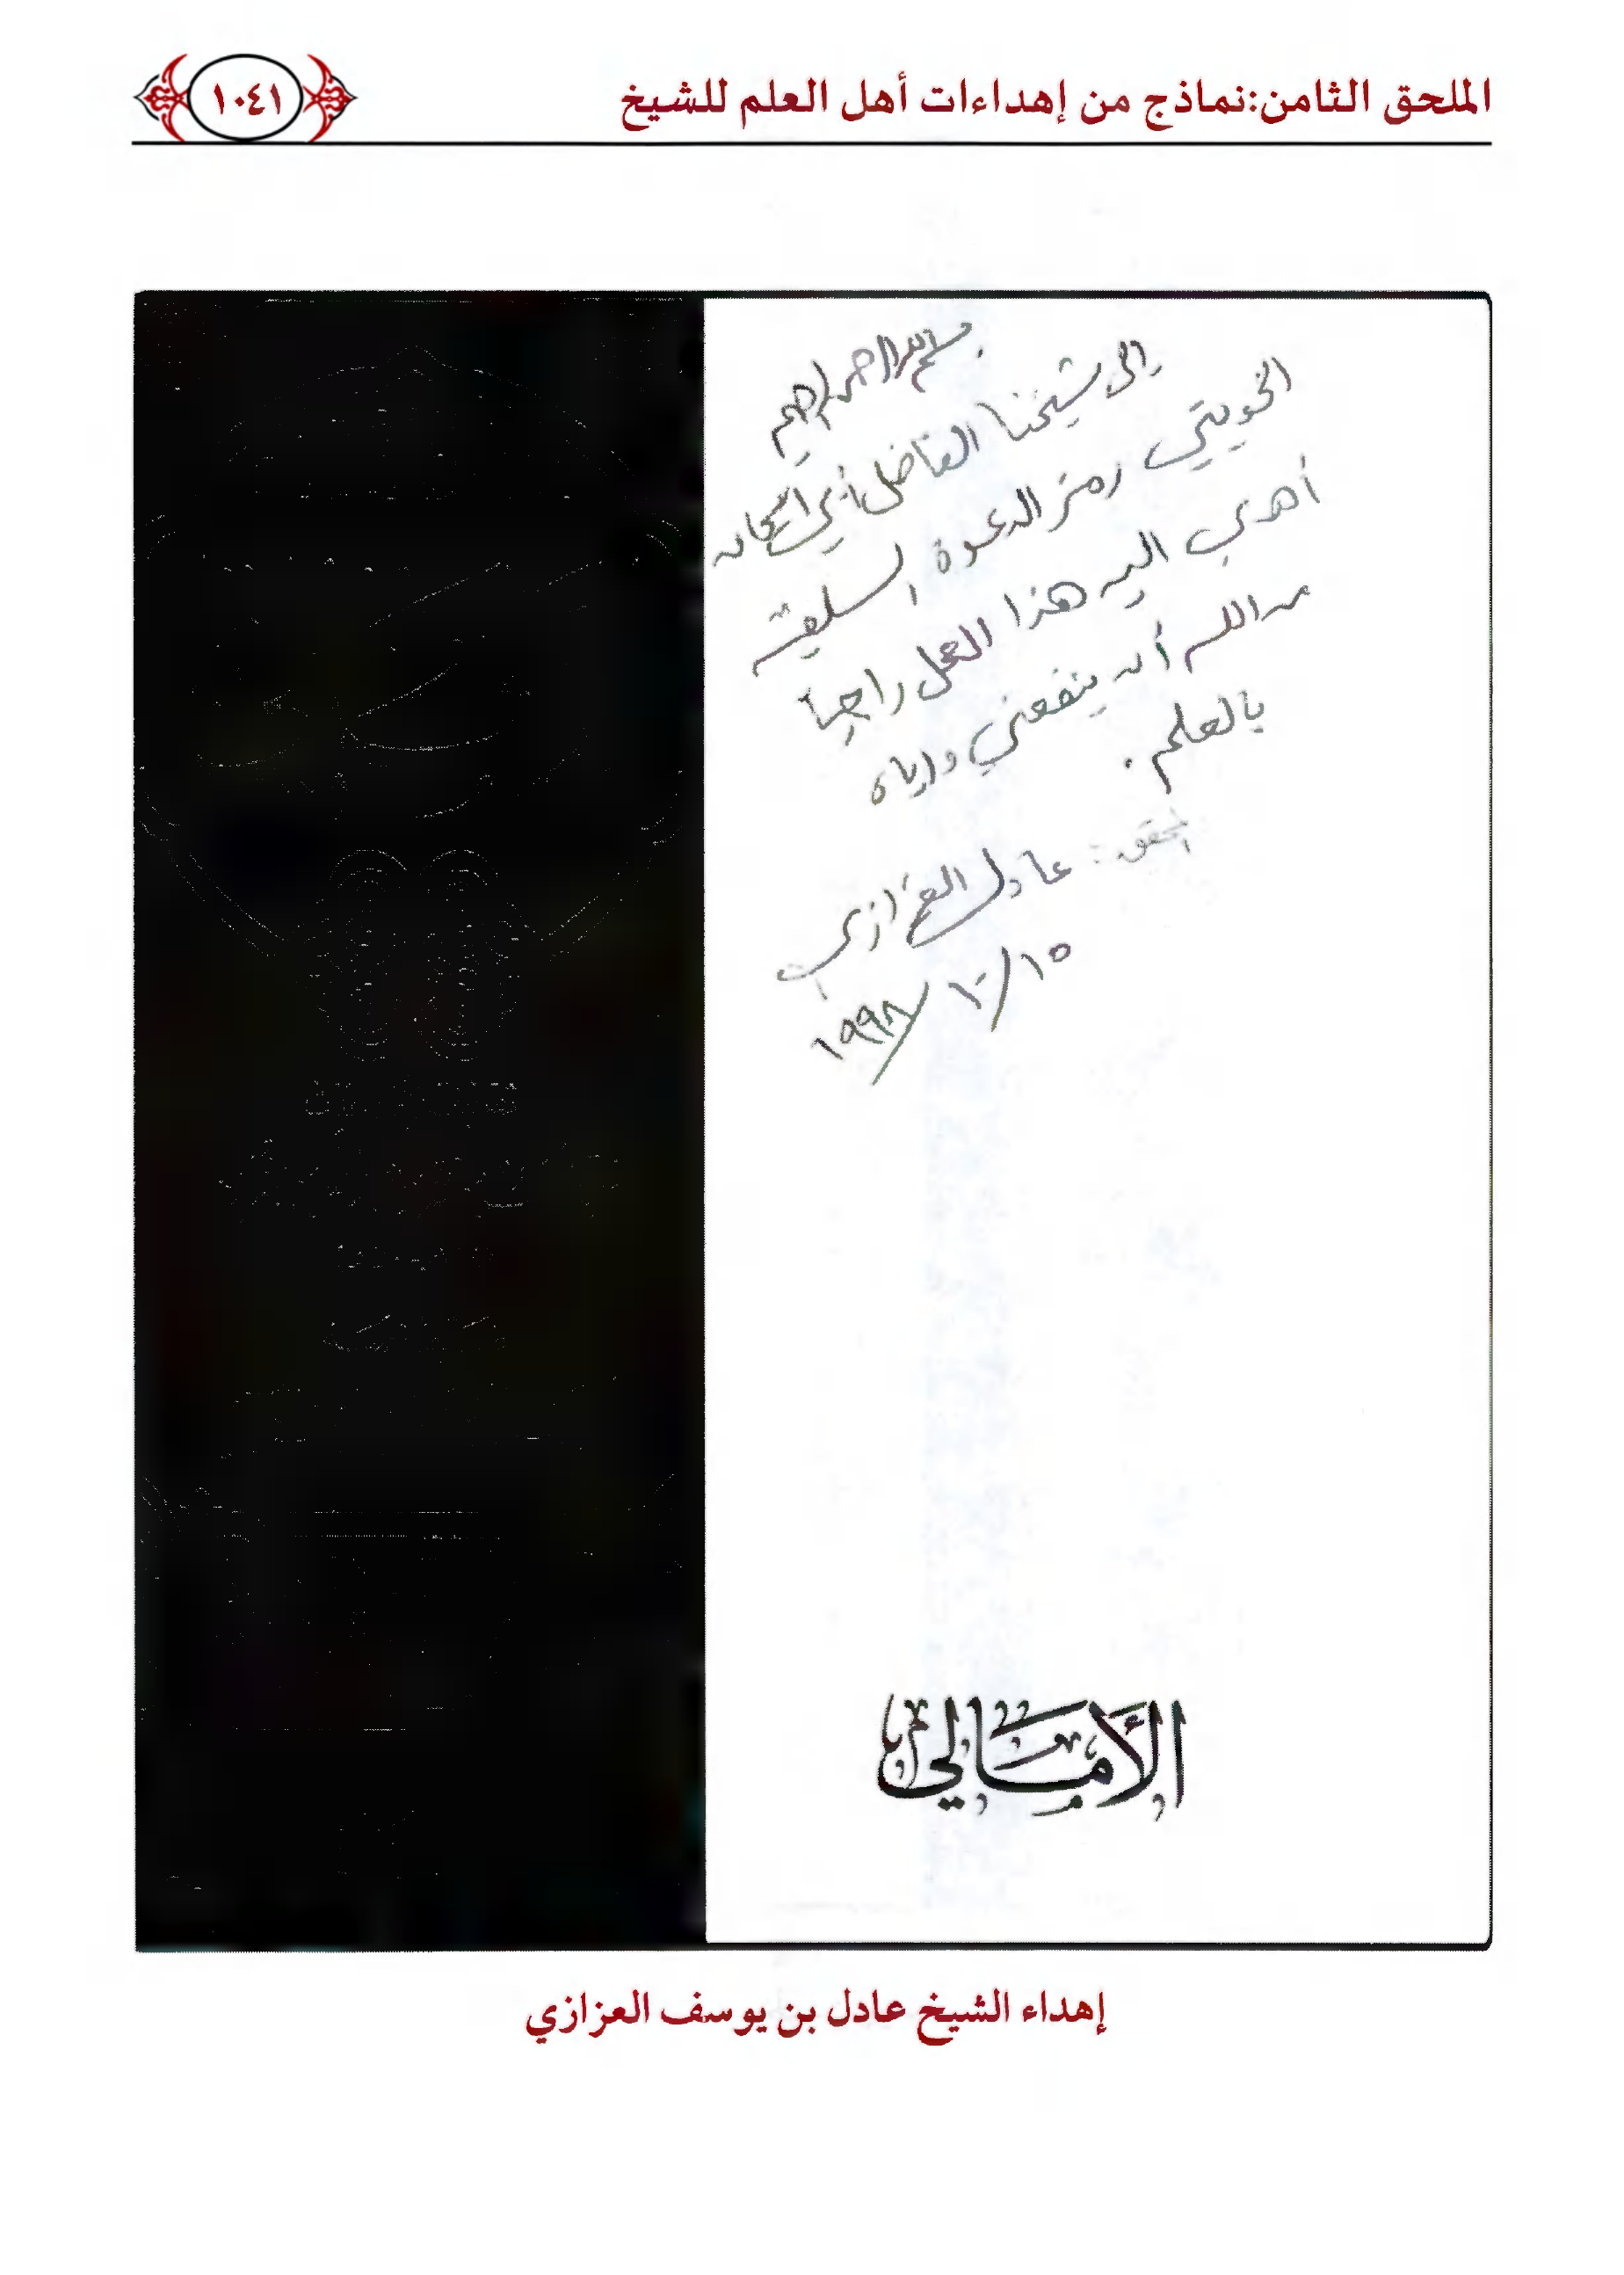 الملحق الثامن:نماذج من إهداءات أهل العلم للشيخ
١٠٤١
بسم الله الرحمن الرحيم
إلى شيخنا الفاضل أبي إسحاق
الحويني رمز الدعوة السلفية
أهدي إليه هذا العمل راجياً
من الله أن ينفعني وإياه
بالعلم.
المحقق: عادل العزازي
١٥/١٠/١٩٩٨
الأمالي
إهداء الشيخ عادل بن يوسف العزازي